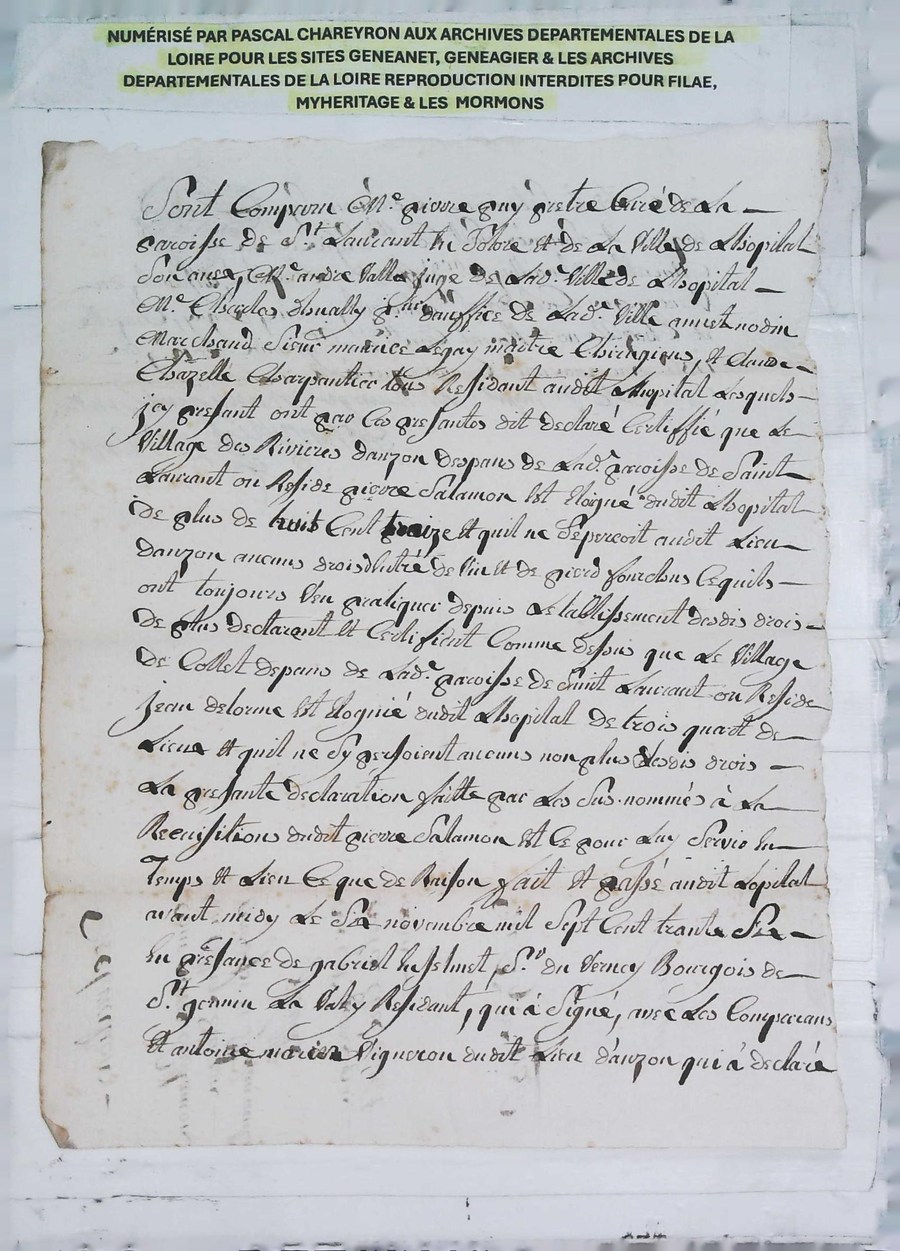 NUMÉRISÉ PAR PASCAL CHAREYRON AUX ARCHIVES DEPARTEMENTALES DE LA
LOIRE POUR LES SITES GENEANET, GENEAGIER & LES ARCHIVES
DEPARTEMENTALES DE LA LOIRE REPRODUCTION INTERDITES POUR FILAE,
MYHERITAGE & LES MORMONS
Sont Comparu Me pierre guy pretre Curé de La
paroisse de St Laurant En Solore et de La Ville de Lhopital
Son anex, Me andre Valla juge de Lade Ville de Lhopital
Me Charles doffice de Lade Ville
Marchand Sieur maurice Legay maitre Chirugiens, et Claude
Chazelle Charpantier tous Residant audit Lhopital Lesquels
jcy presant ont par Ces presantes dit declaré Certiffié que Le
Village des Rivieres danzon despans de Lade paroisse de Saint
Laurant ou Reside pierre Salamon Est Eloigné dudit Lhopital
de plus de huit Cent traize Et quil ne Seperçoit audit Lieu
danzon aucuns drois dentré de Vin et de pierd fourchus Cequils
ont toujours Veu pratiquer depuis Letablissement desdis drois
de plus declarant Et Certifient Comme dessus que Le Village
de Collet depans de Lade paroisse de Saint Laurant ou Reside
jean delorme Est Elognié dudit Lhopital de trois quart de
Lieue Et quil ne Sy persoient aucuns non plus Desdis drois
La presante declaration faitte par Les Sus-nommés à La
Requisition dudit pierre Salamon Est Ce pour Luy Servir En
Temps Et Lieu Ce que de Raison fait Et passé audit Lopital
avant midy Le Six novembre mil Sept Cent trante Six
En presance de gabriel Sr du Verney Bourgois de
St germin La Val y Residant, qui à Signé, avec Les Comparans
Et antoine Vigneron dudit Lieu danzon qui à declaré